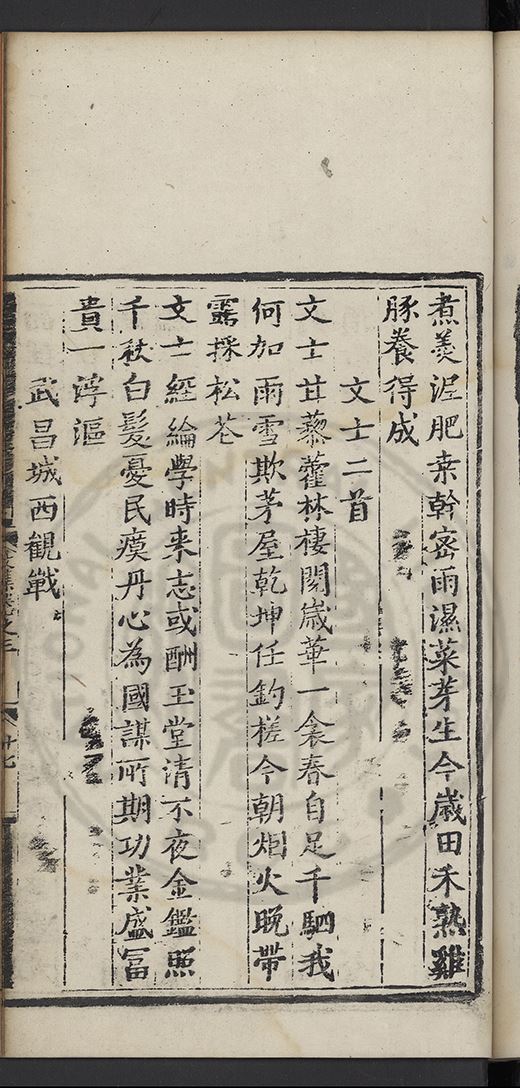 煮羹泥肥桒幹宻雨濕菜芽生今歲田禾熟雞
豚養得成
文士二首
文士甘藜藿林棲閱歲華一衾春自足千駟我
何加雨雪欺茅屋乾坤任釣槎今朝烟火晚帶
露採松花
文士經綸學時来志或酬玉堂清不夜金鑑照
千秋白髮憂民瘼丹心為國謀所期功業盛冨
貴一浮漚
武昌城西観戰
卷之三
廿七